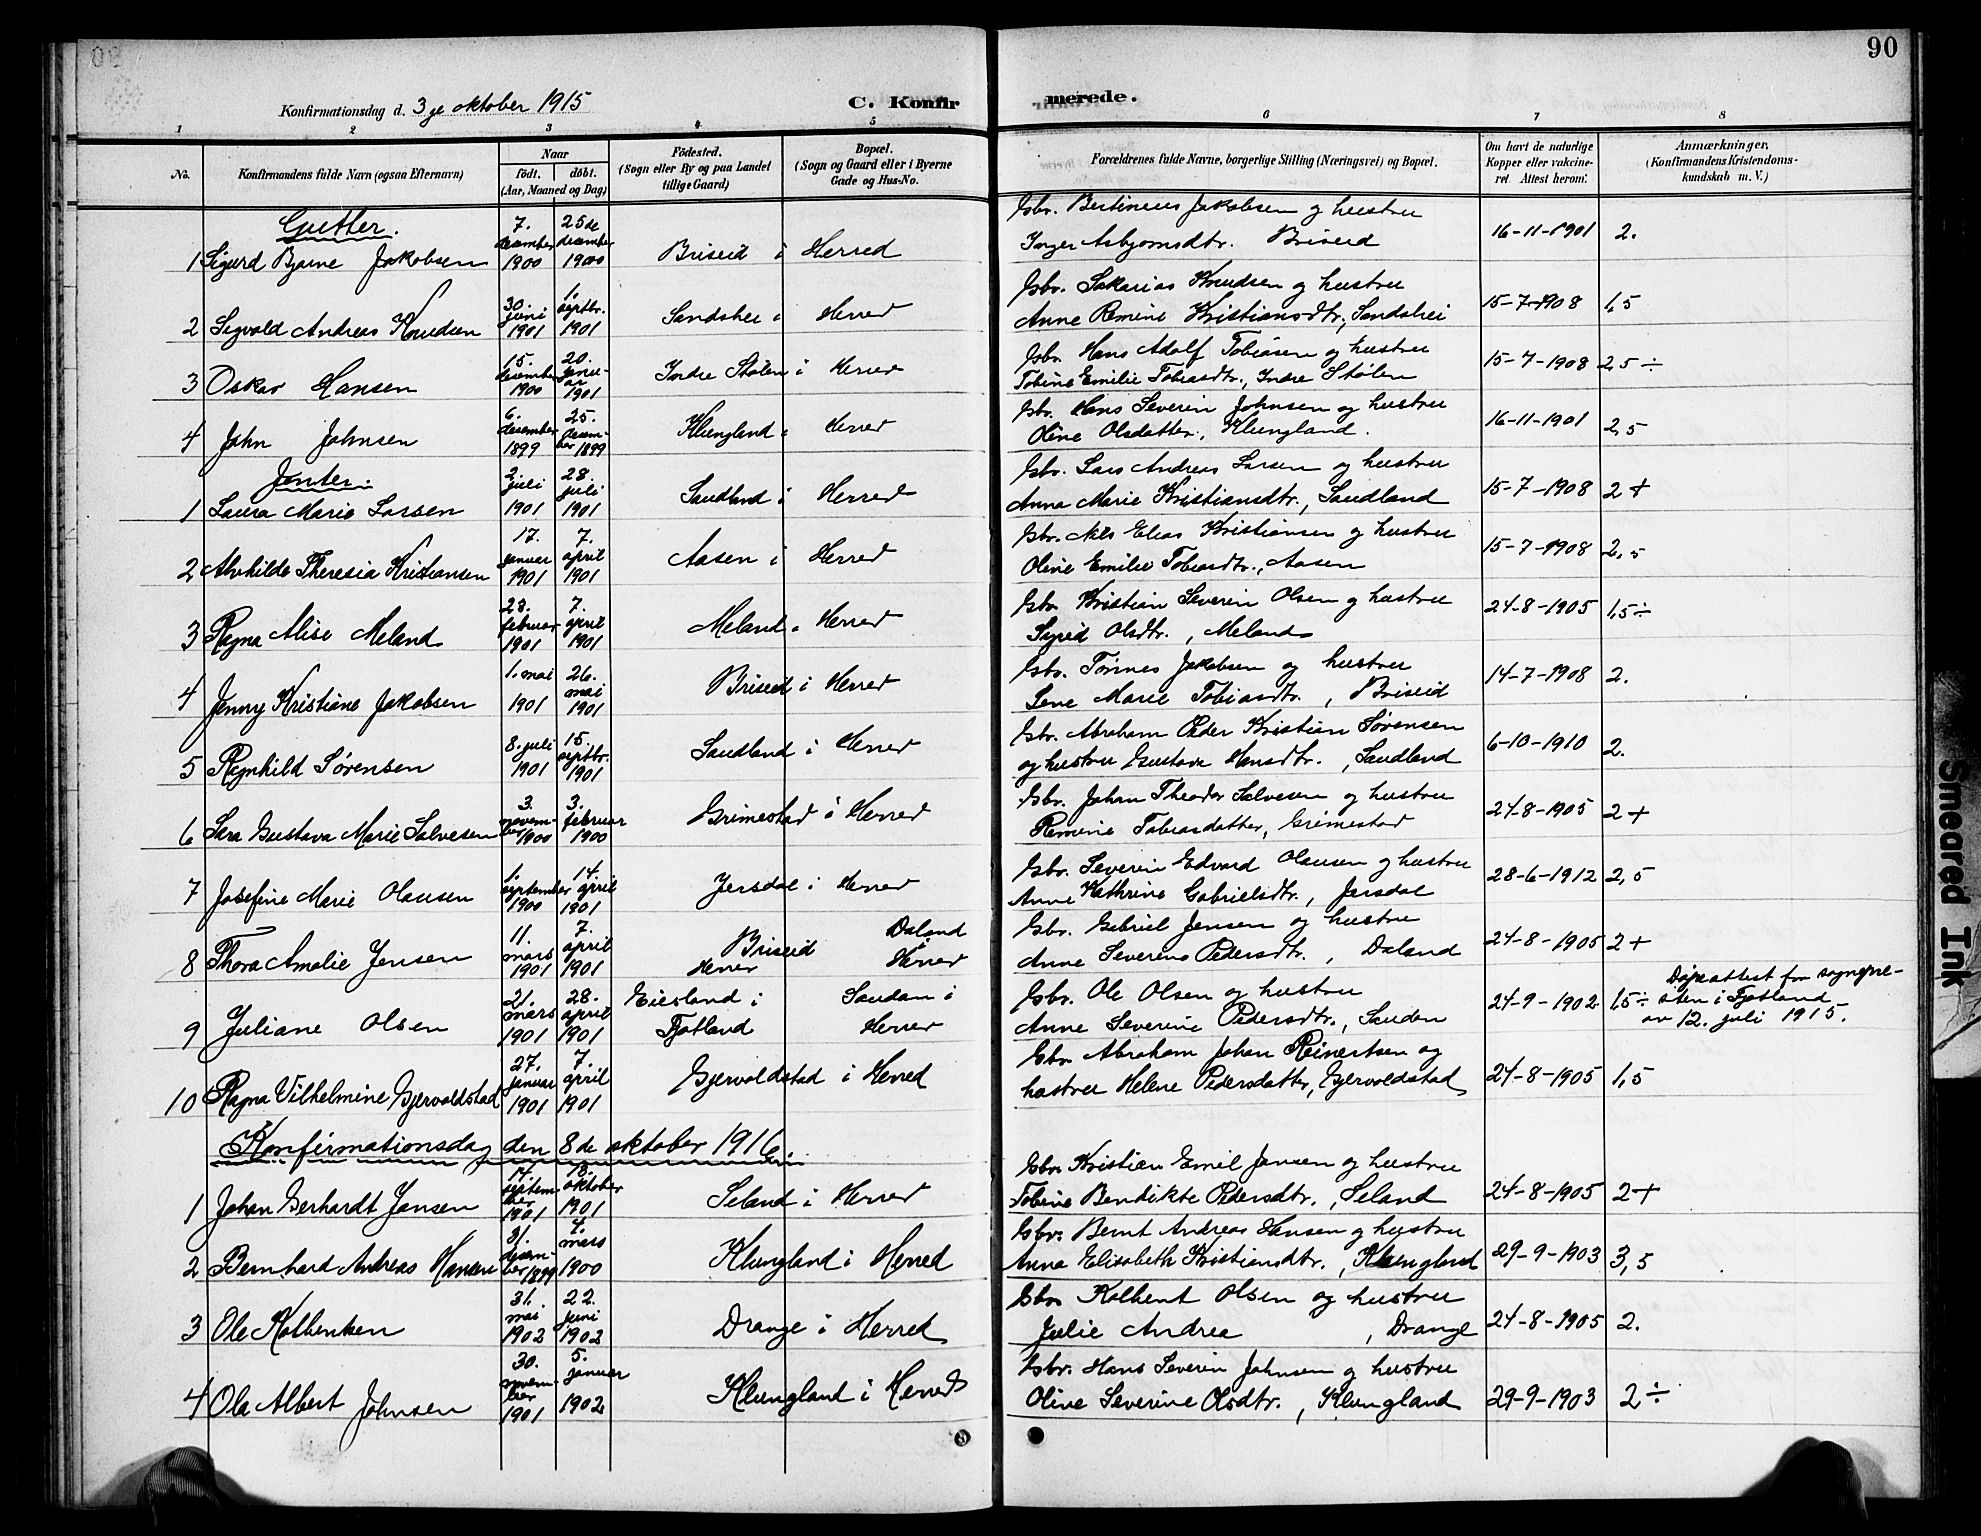 90
Konfirmationsdag d. 3 je oktober 1915
C. Konfirmerede.
1 2 3 4 5 6 7 8
No.
Konfirmandens fulde Navn (ogsaa Efternavn)
Naar
født. døbt.
(Aar, Maaned og Dag)
Fødested.
(Sogn eller By og paa Landet
tillige Gaard)
Bopæl.
(Sogn og Gaard eller i Byerne
Gade og Hus-No.
Forældrenes fulde Navne, borgerlige Stilling (Næringsvei) og Bopæl.
Om havt de naturlige
Kopper eller vakcine-
ret. Attest herom.
Anmærkninger,
(Konfirmandens Kristendoms-
kundskab m. V.)
Gutter.
1 Sigurd Bjarne Jakobsen 7. desember 1900 25de desember 1900 Briseid i Herred
Gbr. Bertineus Jakobsen og hustru
Inger Asbjørnsdtr. Briseid 16-11-1901 2.
2 Sigvald Andreas Knudsen 30. juni 1901 1. septbr. 1901 Sandshei i Herred
Gbr. Sakarias Knudsen og hustru
Anne Remine Kristiansdtr., Sandshei 15-7-1908 1,5
3 Oskar Hansen 15. desember 1900 20. januar 1901 Indre Stølen i Herred
Gbr. Hans Adolf Tobiasen og hustru
Tobine Emilie Tobiasdtr., Indre Stølen 15-7-1908 2,5 ÷
4 John Johnsen 6. desember 1899 25. desember 1899 Klungland i Herred
Gbr. Hans Severin Johnsen og hustru
Oline Olsdatter, Klungland. 16-11-1901 2,5
Jenter.
1 Laura Marie Larsen 2. juli 1901 28. juli 1901 Sandland i Herred
Gbr. Lars Andreas Larsen og hustru
Anna Marie Kristiansdtr., Sandland 15-7-1908 2+
2 Alvhilde Theresia Kristiansen 17. januar 1901 7. april 1901 Aasen i Herred
Gbr. Nils Elias Kristiansen og hustru
Oline Emilie Tobiasdtr., Aasen 15-7-1908 2,5
3 Ragna Alise Meland 23. februar 1901 7. april 1901 Meland i Herred
Gbr. Kristian Severin Olsen og hustru
Sigrid Olsdtr., Meland 24-8-1905 1,5÷
4 Jenny Kristiane Jakobsen 1. mai 1901 26. mai 1901 Briseid i Herred
Gbr. Tørnes Jakobsen og hustru
Lene Marie Tobiasdtr., Briseid 14-7-1908 2.
5 Ragnhild Sørensen 8. juli 1901 15. septbr. 1901 Sandland i Herred
Gbr. Abraham Peder Kristian Sørensen
og hustru Gustava Hansdtr., Sandland 6-10-1910 2.
6 Sara Gustava Marie Salvesen 3. november 1900 3. februar 1900 Grimestad i Herred
Gbr. Johan Theodor Salvesen og hustru
Remine Tobiasdatter, Grimestad 24-8-1905 2+
7 Josefine Marie Olausen 1. september 1900 14. april 1901 Jersdal i Herred
Gbr. Severin Edvard Olausen og hustru
Anne Kathrine Gabrielsdtr., Jersdal 28-6-1912 2,5
8 Thora Amalie Jensen 11. mars 1901 7. april 1901 Briseid Herred Daland Herred
Gbr. Gabriel Jensen og hustru
Anne Severine Pedersdtr., Daland 24-8-1905 2+
9 Juliane Olsen 21. mars 1901 28. april 1901 Eiesland i Fjotland Saudan i Herred
Gbr. Ole Olsen og hustru
Anne Severine Pedersdtr., Sauden 24-9-1902 1,5÷ Dåpsattest fra sognepresten i Fjotland av 12. juli 1915.
10 Ragna Vilhelmine Gjervoldstad 27. januar 1901 7. april 1901 Gjervoldstad i Herred
Gbr. Abraham Johan Reinertsen og
hustru Helene Pedersdatter, Gjervoldstad 24-8-1905 1,5
Konfirmationsdag den 8de oktober 1916.
1 Johan Gerhardt Jansen 14. september 1901 13. oktober 1901 Seland i Herred
Gbr. Kristian Emil Jansen og hustru
Tobine Bendikte Pedersdtr., Seland 24-8-1905 2+
2 Bernhard Andreas Hansen 31. desember 1899 4. mars 1900 Klungland i Herred
Gbr. Bernt Andreas Hansen og hustru
Anna Elisabeth Kristiansdtr., Klungland 29-9-1903 3,5
3 Ole Kolbentsen 31. mai 1902 22. juni 1902 Drange i Herred
Gbr. Kolbent Olsen og hustru
Julie Andrea , Drange 24-8-1905 2.
4 Ola Albert Johnsen 30. november 1901 5. januar 1902 Klungland i Herred
Gbr. Hans Severin Johnsen og hustru
Oline Severine Olsdtr., Klungland 29-9-1903 2÷
Smeared Ink